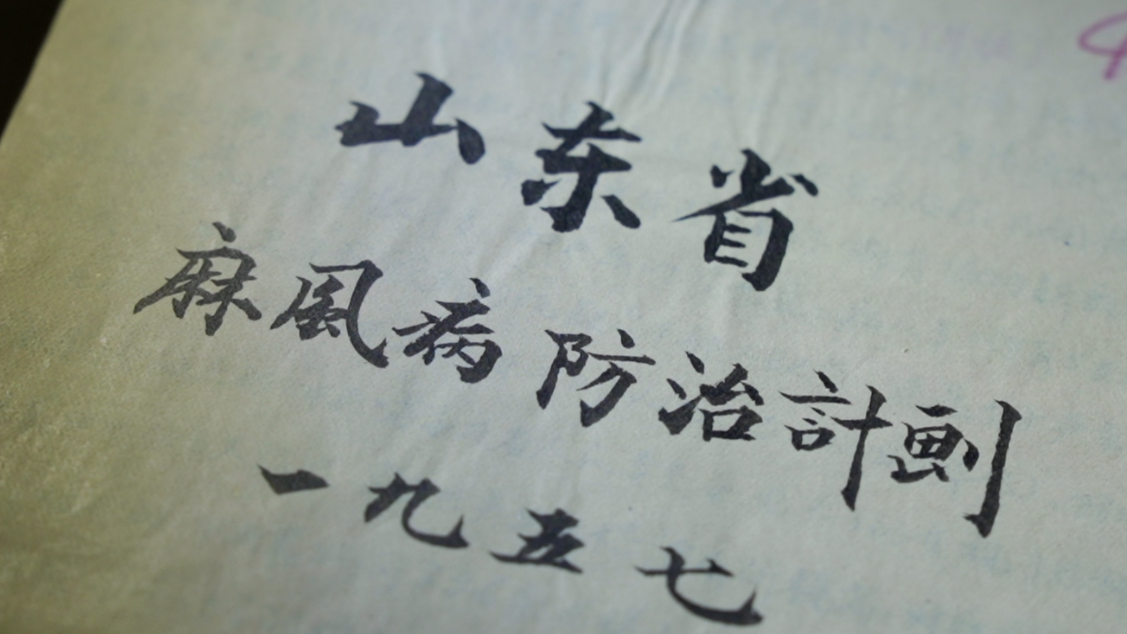 山东省
麻風病防治計劃
一九五七